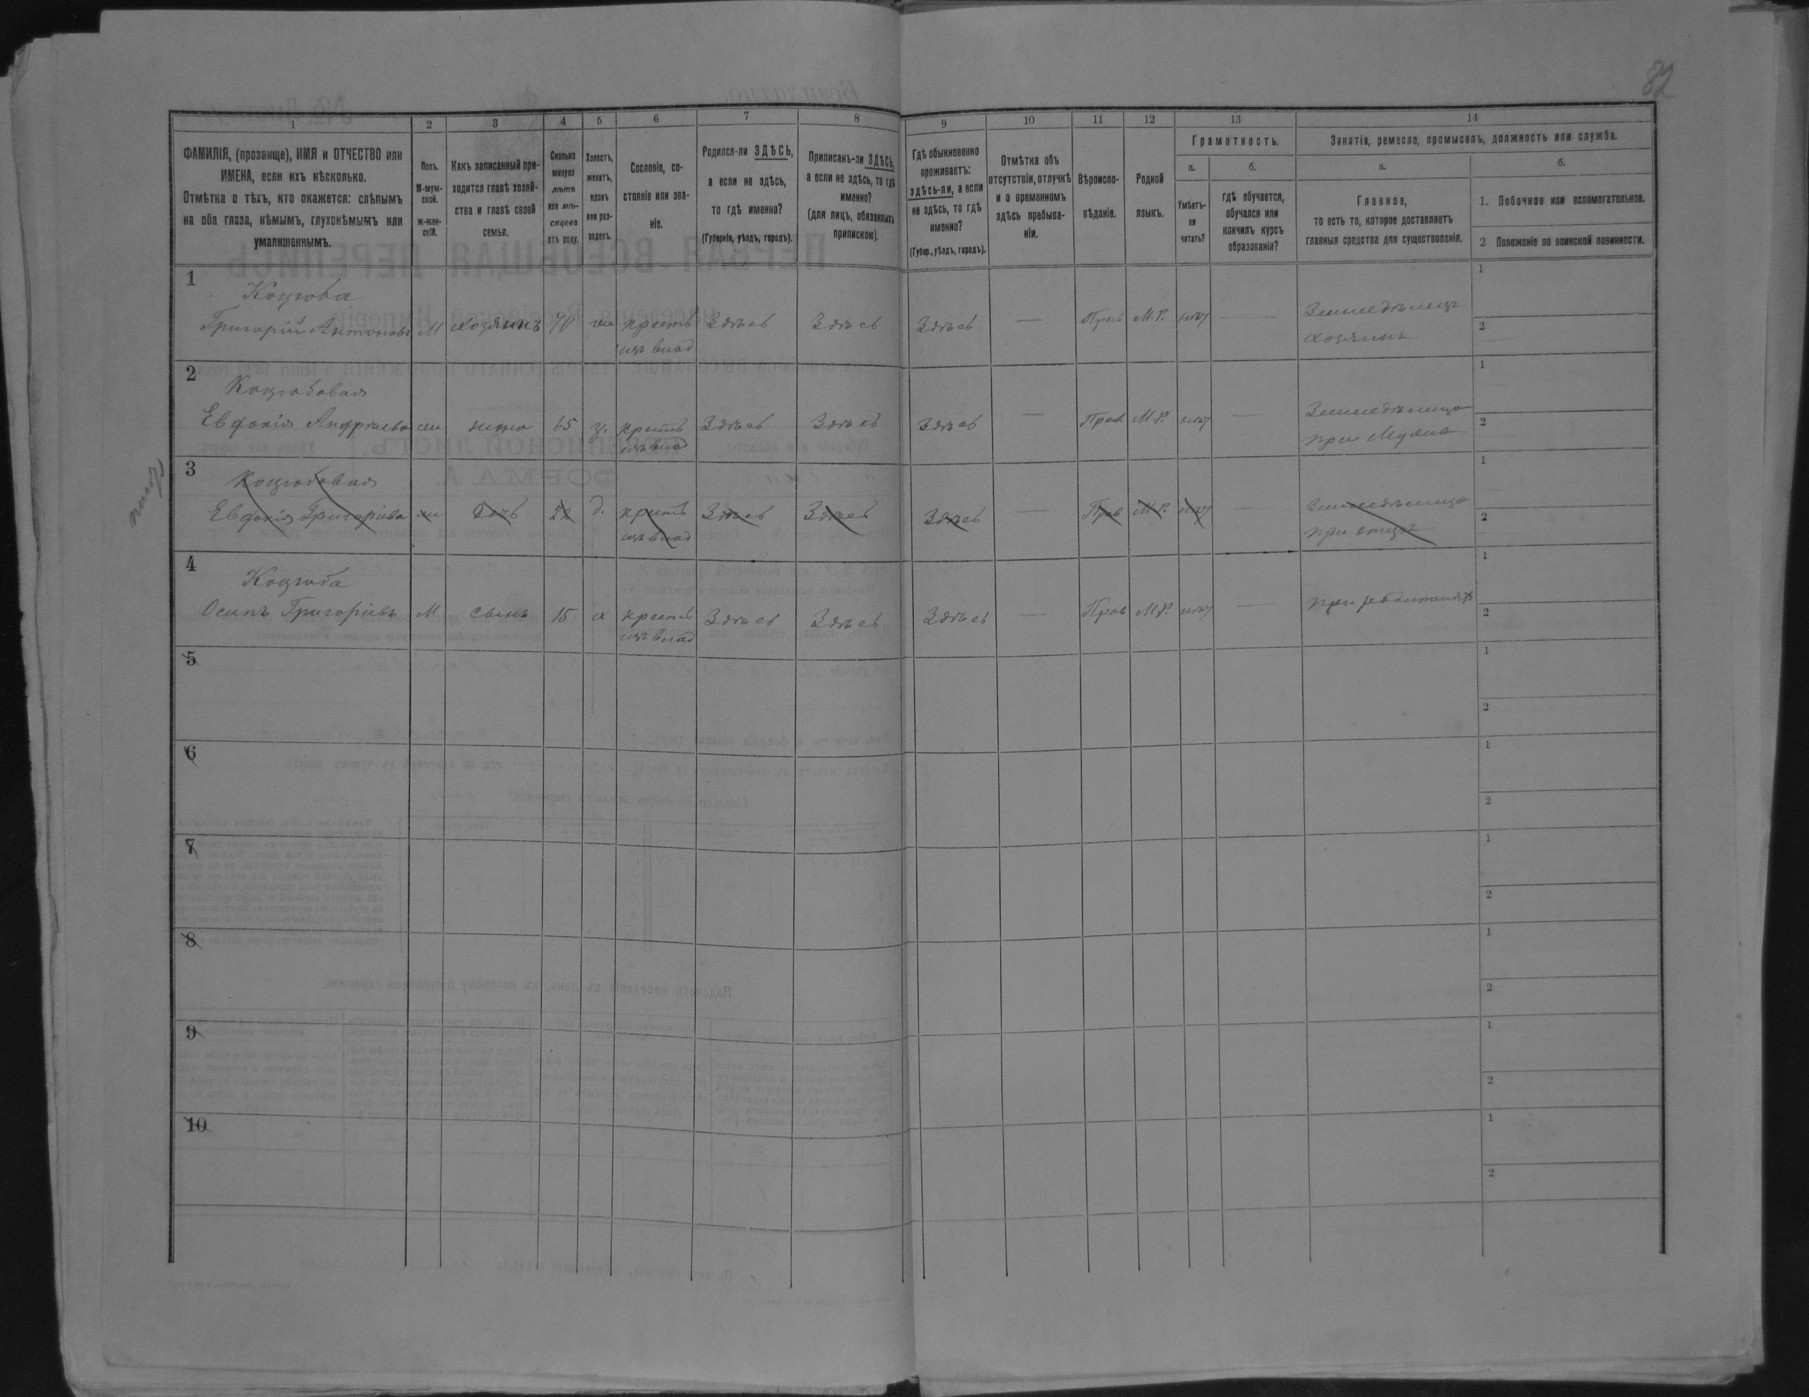 82
1
2
3
4
5
6
7
8
9
10
11
12
13
14
ФАМИЛІЯ, (прозвище), ИМЯ и ОТЧЕСТВО или
ИМЕНА, если ихъ нѣсколько.
Отмѣтка о тѣхъ, кто окажется: слѣпымъ
на оба глаза, нѣмымъ, глухонѣмымъ или
умалишеннымъ.
Полъ.
М-муж-
ской.
ж-жен-
скій.
Какъ записанный при-
ходится главѣ хозяй-
ства и главѣ своей
семьи.
Сколько
минуло
лѣтъ
или мѣ-
сяцевъ
отъ роду.
Холостъ,
женатъ,
вдовъ
или раз-
веденъ.
Сословіе, со-
стояніе или зва-
ніе.
Родился-ли ЗДѢСЬ,
а если не здѣсь,
то гдѣ именно?
(Губернія, уѣздъ, городъ).
Приписанъ-ли ЗДѢСЬ,
а если не здѣсь, то гдѣ
именно?
(для лицъ, обязанныхъ
припискою).
Гдѣ обыкновенно
проживаетъ:
здѣсь-ли, а если
не здѣсь, то гдѣ
именно?
(Губер., уѣздъ, городъ).
Отмѣтка объ
отсутствіи, отлучкѣ
и о временномъ
здѣсь пребыва-
ніи.
Вѣроиспо-
вѣданіе.
Родной
языкъ.
Грамотность.
а.
Умѣетъ-
ли
читать?
б.
гдѣ обучается,
обучался или
кончилъ курсъ
образованія?
Занятіе, ремесло, промыселъ, должность или служба.
а.
Главное,
то есть то, которое доставляетъ
главныя средства для существованія.
б.
1. Побочное или вспомогательное.
2 Положеніе по воинской повинности.
1
Коцюба
Григорій Антоновъ М хозяинъ 70 жен крестъ Здѣсь Здѣсь Здѣсь — Прав М.Р. нѣт — Земледѣлецъ
изъ влад
хозяинъ
1
2
2
Коцюбовая
Евфокія Андреева жен жена 65 з. крестъ Здѣсь Здѣсь Здѣсь — Прав М.Р. нѣт — Земледѣлица
изъ влад
при Мужѣ
1
2
3
Коцюбовая
Евфокія Григоріева жен дочь 22 д. крестъ Здѣсь Здѣсь Здѣсь — Прав М.Р. нѣт — Земледѣлица
изъ влад
при отцѣ
1
2
4
Коцюба
Осипъ Григоріевъ М сынъ 15 х крестъ Здѣсь Здѣсь Здѣсь — Прав М.Р. нѣт — при родителяхъ
изъ влад
1
2
5
1
2
6
1
2
7
1
2
8
1
2
9
1
2
10
1
2